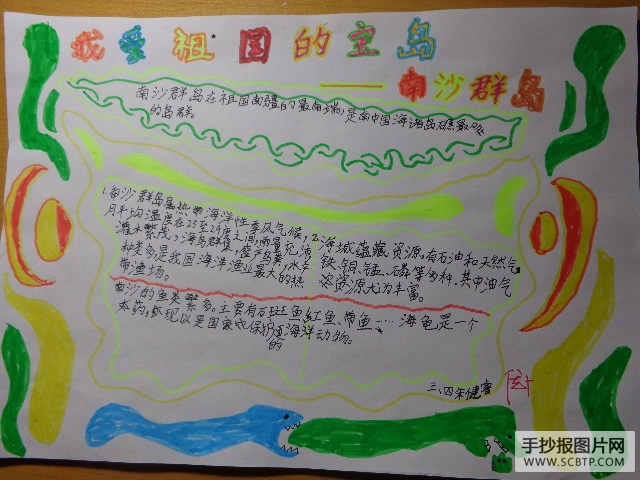 我爱祖国的宝岛
——南沙群岛
南沙群岛在祖国南疆的最南端,是南中国海诸岛礁最多
的岛群。
1.南沙群岛属热带海洋性季风气候,
月平均温度在25至29度之间,雨量充沛
灌木繁茂,海鸟群集,盛产鸟粪,水产
种类多是我国海洋渔业最大的热
带渔场。
2.海域蕴藏资源,有石油和天然气
铁、铜、锰、磷等多种.其中油气
资源尤为丰富。
南沙的鱼类繁多。主要有石斑鱼,红鱼,带鱼……海龟是一个
现以是国家保护海洋动物。
的
三、四朱健睿
手抄报图片网
WWW.SCBTP.COM